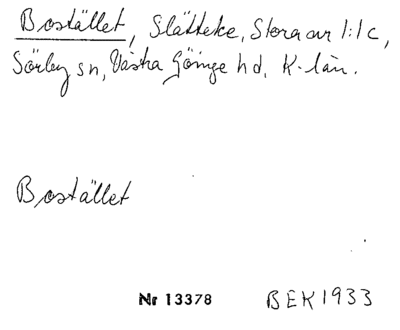 Bostället, Slätteke, Stora av 1:1c,
Sörby sn, Västra Göinge hd, K-län.
Bostället
Nr 13378 BEK1933